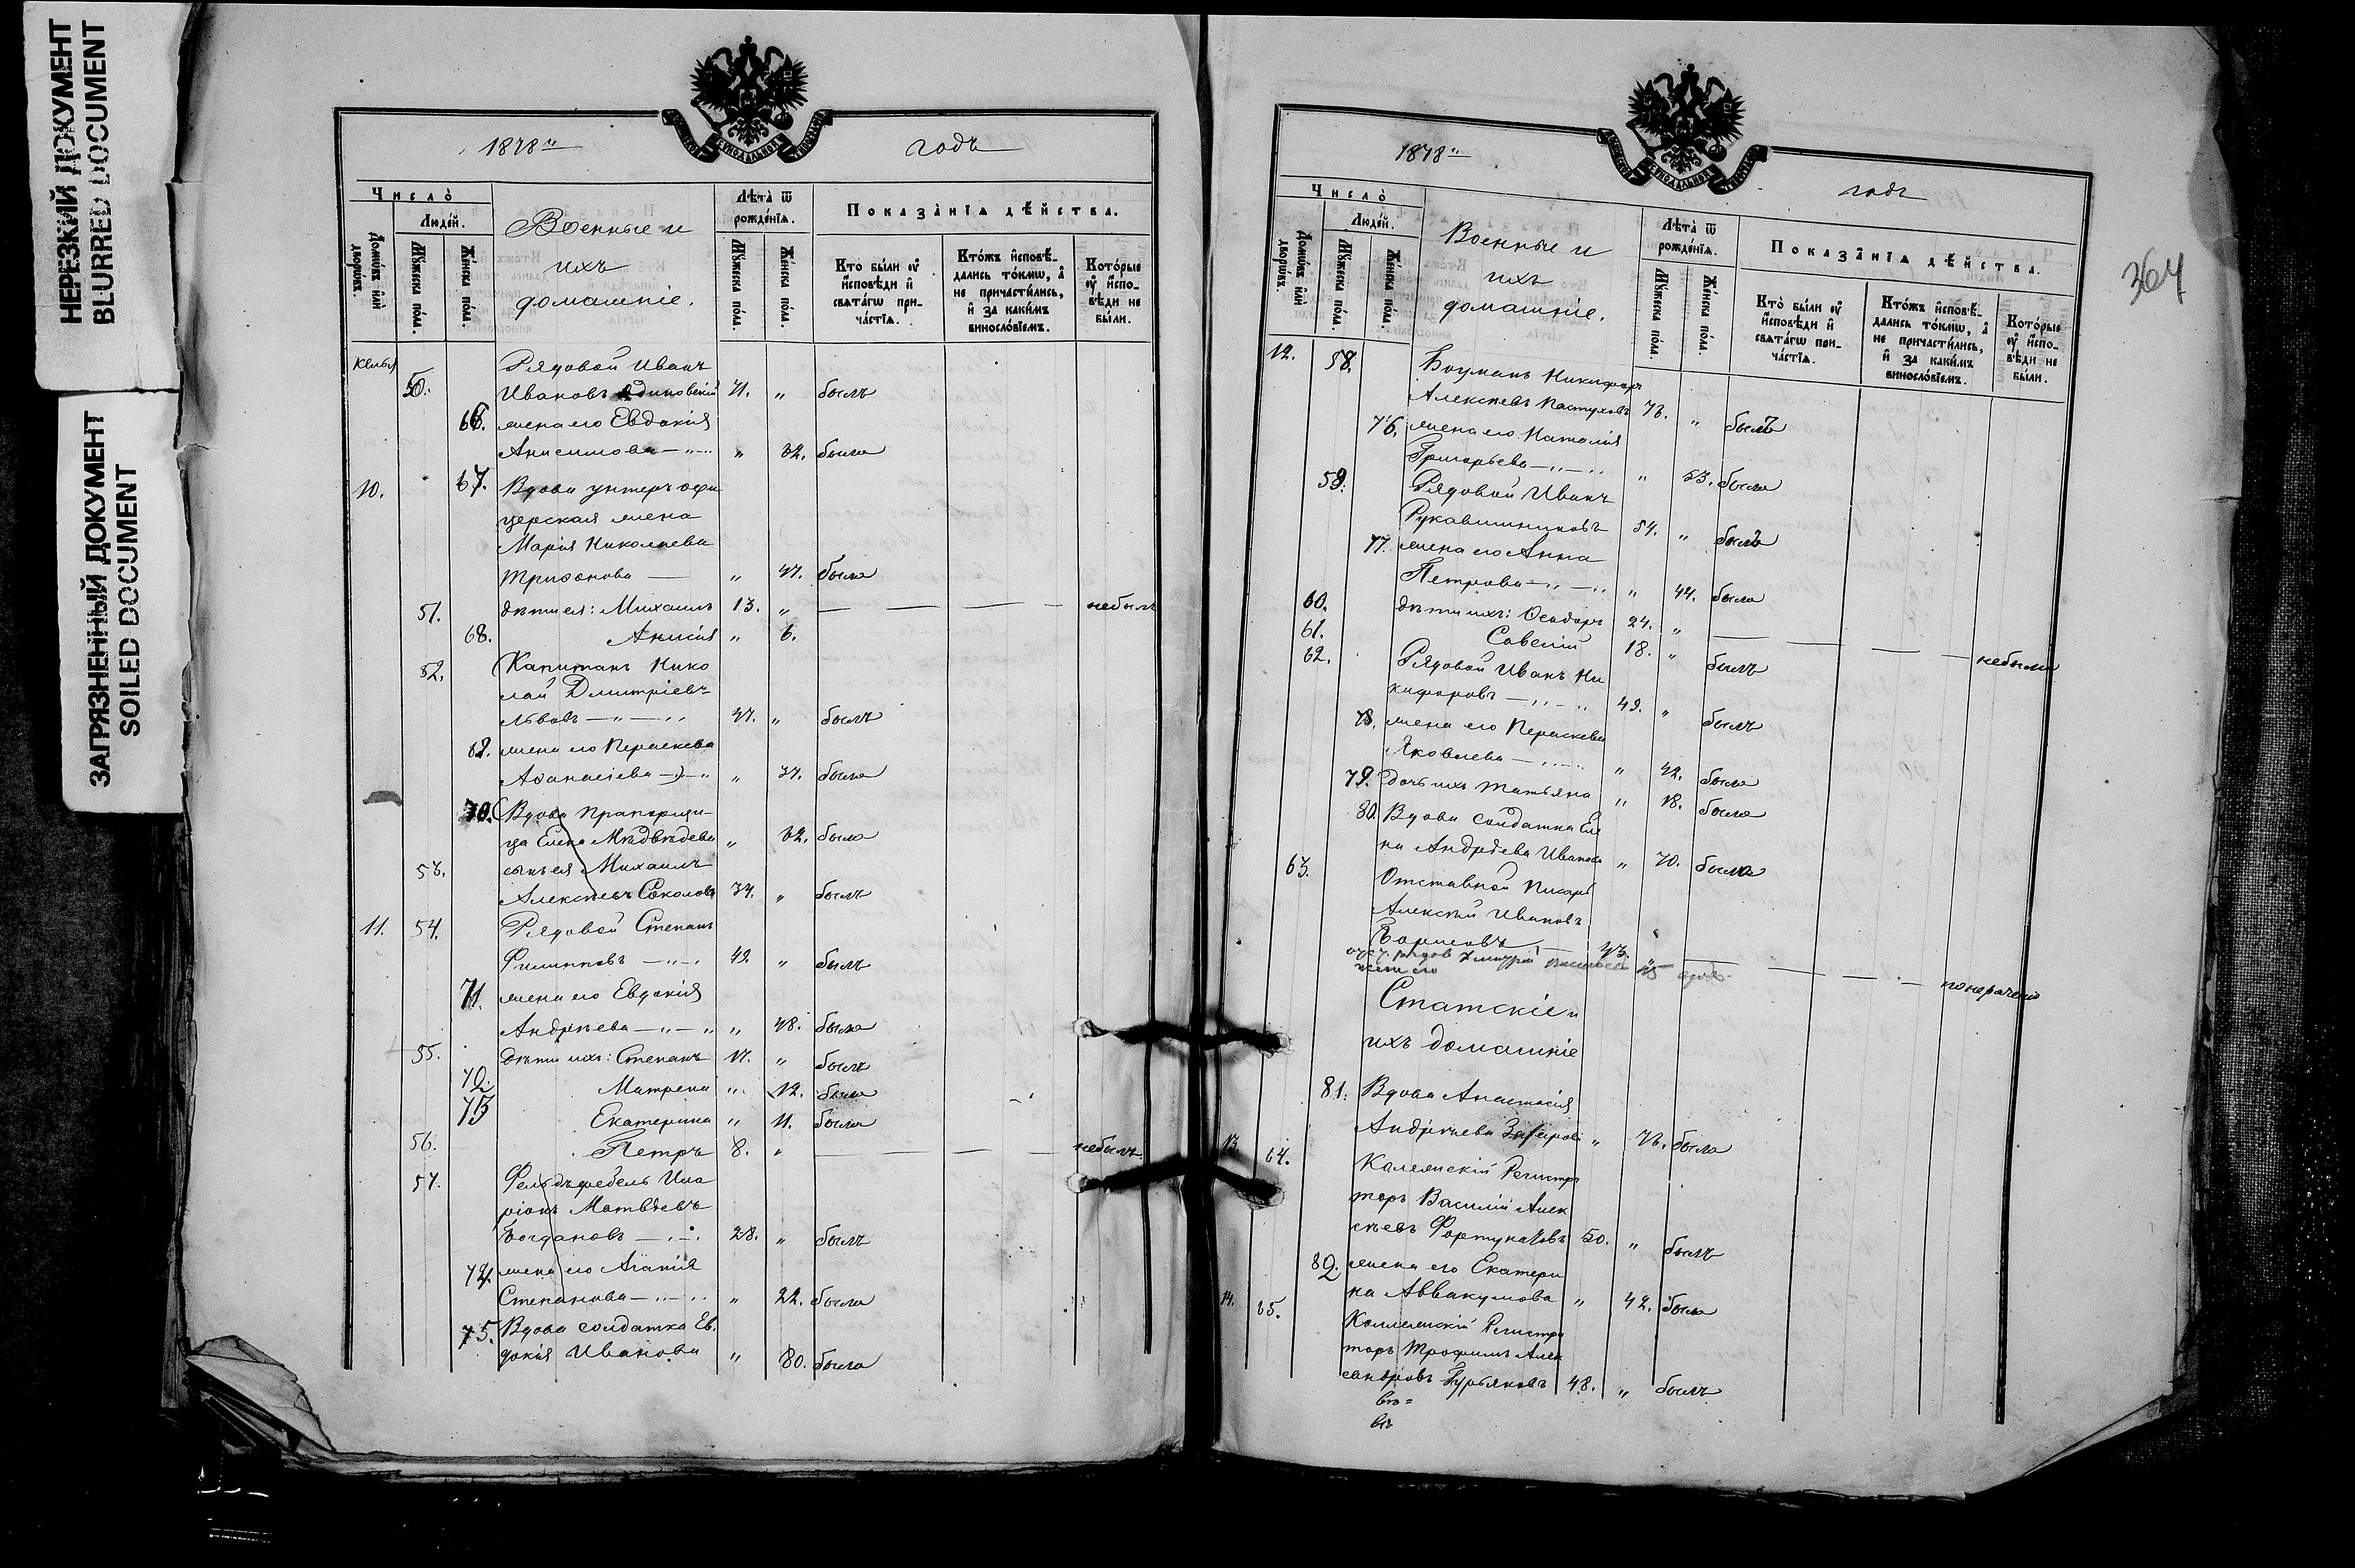 НЕРЕЗКИЙ ДОКУМЕНТ
BLURRED DOCUMENT
ЗАГРЯЗНЕННЫЙ ДОКУМЕНТ
SOILED DOCUMENT
1878 годъ
Число̀
Люде́й.
Домѡ́въ и҆лѝ дворѡ́въ.
Мꙋ́жеска по́ла.
Же́нска по́ла.
Военные и
ихъ
домашніе.
Лѣта̀ ѿ рожде́нїѧ.
Мꙋ́жеска по́ла.
Же́нска по́ла.
Показа̑нїѧ дѣ́йства.
Кто̀ бы́ли оу҆ и҆сповѣ́ди и҆ свѧта́гѡ прича́стїѧ.
Кто́жъ и҆сповѣ́дались то́кмѡ, а҆ не причасти́лись, и҆ за каки́мъ винослові́емъ.
Кото́рые оу҆ и҆сповѣ́ди не бы́ли.
Келья Рядовой Иванъ
50. Ивановъ 71. " былъ
66. жена его Евдокія
Анисимова " 62. была
10. 67. Вдова унтеръ офи
церская жена
Марія Николаева
Трифонова " 47. была
51. дѣти ея: Михаилъ 13. " небылъ
68. Анисія " 6.
52. Капитанъ Нико
лай Дмитріевъ
Львовъ 47. " былъ
69. жена его Параскева
Афанасіева " 37. была
70. Вдова Прапорщи-
ца Елена Мѣдвѣдева " 62. была
53. сынъ ея Михаилъ
Алексѣевъ Соколовъ 34. " былъ
11. 54. Рядовой Степанъ
Филипповъ 49. " былъ
71. жена его Евдокія
Андрѣева " 48. была
55. дѣти ихъ: Степанъ 17. " былъ
72. Матрена " 12. была
73 Екатерина " 11. была
56. Петръ 8. " небылъ
57. Фельдфебель Ила
ріонъ Матвѣевъ
Богдановъ 28. " былъ
74. жена его Агапія
Степанова " 22. была
75. Вдова солдатка Ев.
докія Иванова " 80. была
1878 годъ
364
Число̀
Люде́й.
Домѡ́въ и҆лѝ дворѡ́въ.
Мꙋ́жеска по́ла.
Же́нска по́ла.
Военные и
ихъ
домашніе.
Лѣта̀ ѿ рожде́нїѧ.
Мꙋ́жеска по́ла.
Же́нска по́ла.
Показа̑нїѧ дѣ́йства.
Кто̀ бы́ли оу҆ и҆сповѣ́ди и҆ свѧта́гѡ прича́стїѧ.
Кто́жъ и҆сповѣ́дались то́кмѡ, а҆ не причасти́лись, и҆ за каки́мъ винослові́емъ.
Кото́рые оу҆ и҆сповѣ́ди не бы́ли.
12. 58. Боцманъ Никифоръ
Алексѣевъ Пастуховъ 73. " былъ
76. жена его Наталія
Григорьева " 53. была
59. Рядовой Иванъ
Рукавишниковъ 54. " былъ
77. жена его Анна
Петрова " 44. была
60. дѣти ихъ: Феодоръ 24. "
61. Савелій 18. " небыли
62. Рядовой Иванъ Ни былъ
кифоровъ 49. "
78. жена его Параскева былъ
Яковлева " 42. была
79. дочь ихъ Татьяна " 18. была
80. Вдова солдатка Еле
на Андрѣева Иванова " 70. была
63. Отставной Писарь
Алексѣй Ивановъ
Борисовъ 43. " понераченію
жена его 45
Статскіе и
ихъ домашніе
81. Вдова Анастасія
Андрѣева " была
13. 64. Колежскій Регистра
торъ Василій Алек
сѣевъ Фортунатовъ 50. " былъ
82. жена его Екатери
на Аввакумова " 42. была
14. 65. Коллежскій Регистра
торъ Трофимъ Алек
сандровъ Гурьяковъ 48. " былъ